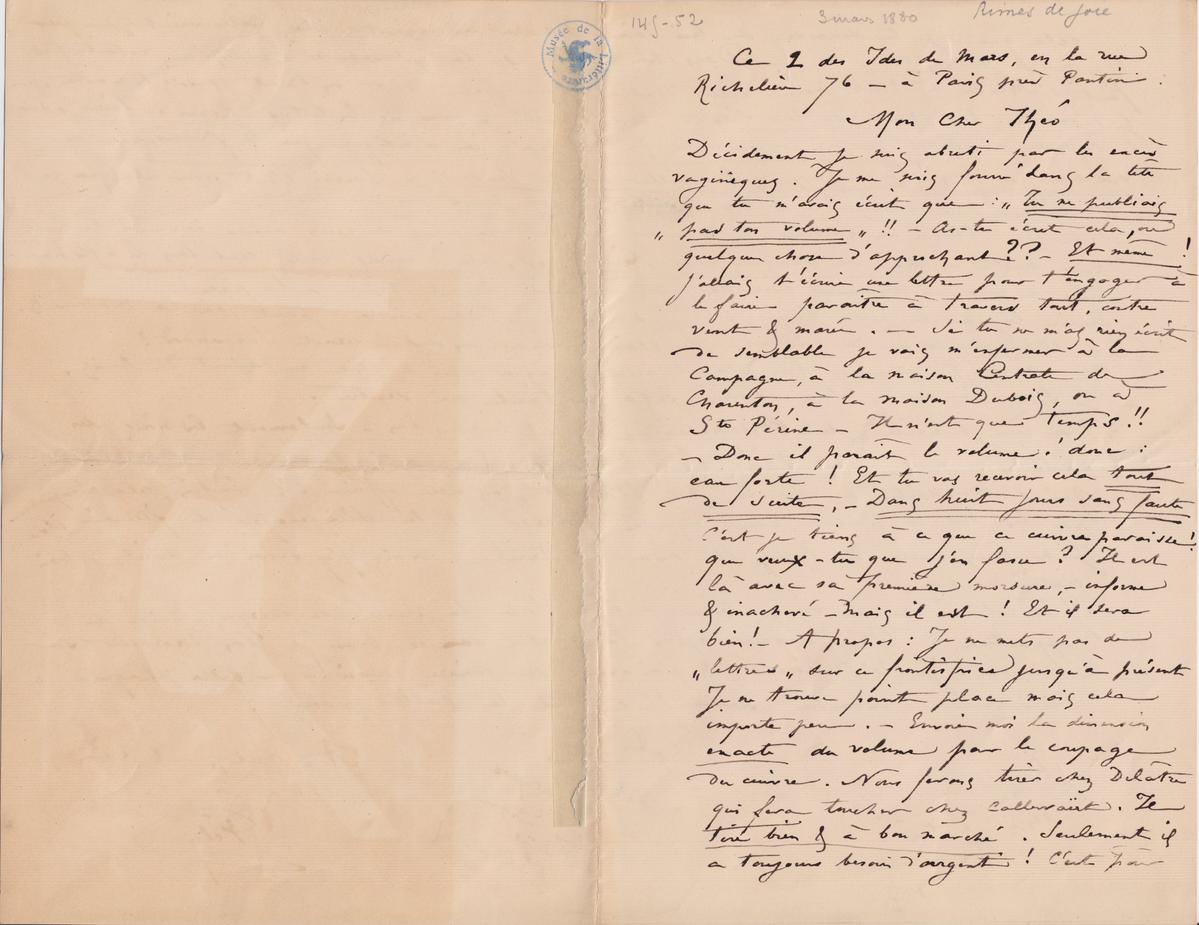 145-52
3 mars 1880
Rimes de Joie
Musée de la Littérature
Ce 2 des Ides de Mars, en la rue
Richelieu 76 — à Paris près Pantin.
Mon Cher Théo
Décidement je suis abruti par les excès
vaginèques. Je me suis fourré dans la tête
que tu m'avais écrit que : „ Tu ne publiais
„ pas ton volume „ !! — As-tu écrit cela, ou
quelque chose d'approchant ?? — Et même !
j'allais t'écrire une lettre pour t'engager à
le faire paraître à travers tout, contre
vent & marée. — Si tu ne m'as rien écrit
de semblable je vais m'enfermer à la
Campagne, à la maison Centrale de
Charenton, à la maison Dubois, ou à
Ste Périne — Il n'est que temps !!
— Donc il parait le volume ! donc :
eau forte ! Et tu vas recevoir cela tout
de suite, — Dans huit jours sans faute
C'est je tiens à ce que ce cuivre paraisse !
que veux-tu que j'en fasse ? Il est
là avec sa première morsure, — informe
& inachevé — Mais il est ! Et il sera
bien ! — A propos : Je ne mets pas de
„ lettres „ sur ce frontispice jusqu'à présent
Je ne trouve point place mais cela
importe peu. — Envoie moi la dimension
exacte du volume pour le coupage
du cuivre. Nous ferons tirer chez Delâtre
qui fera toucher chez Callewaërt. Il
tire bien & à bon marché. Seulement il
a toujours besoin d'argent ! C'est pour